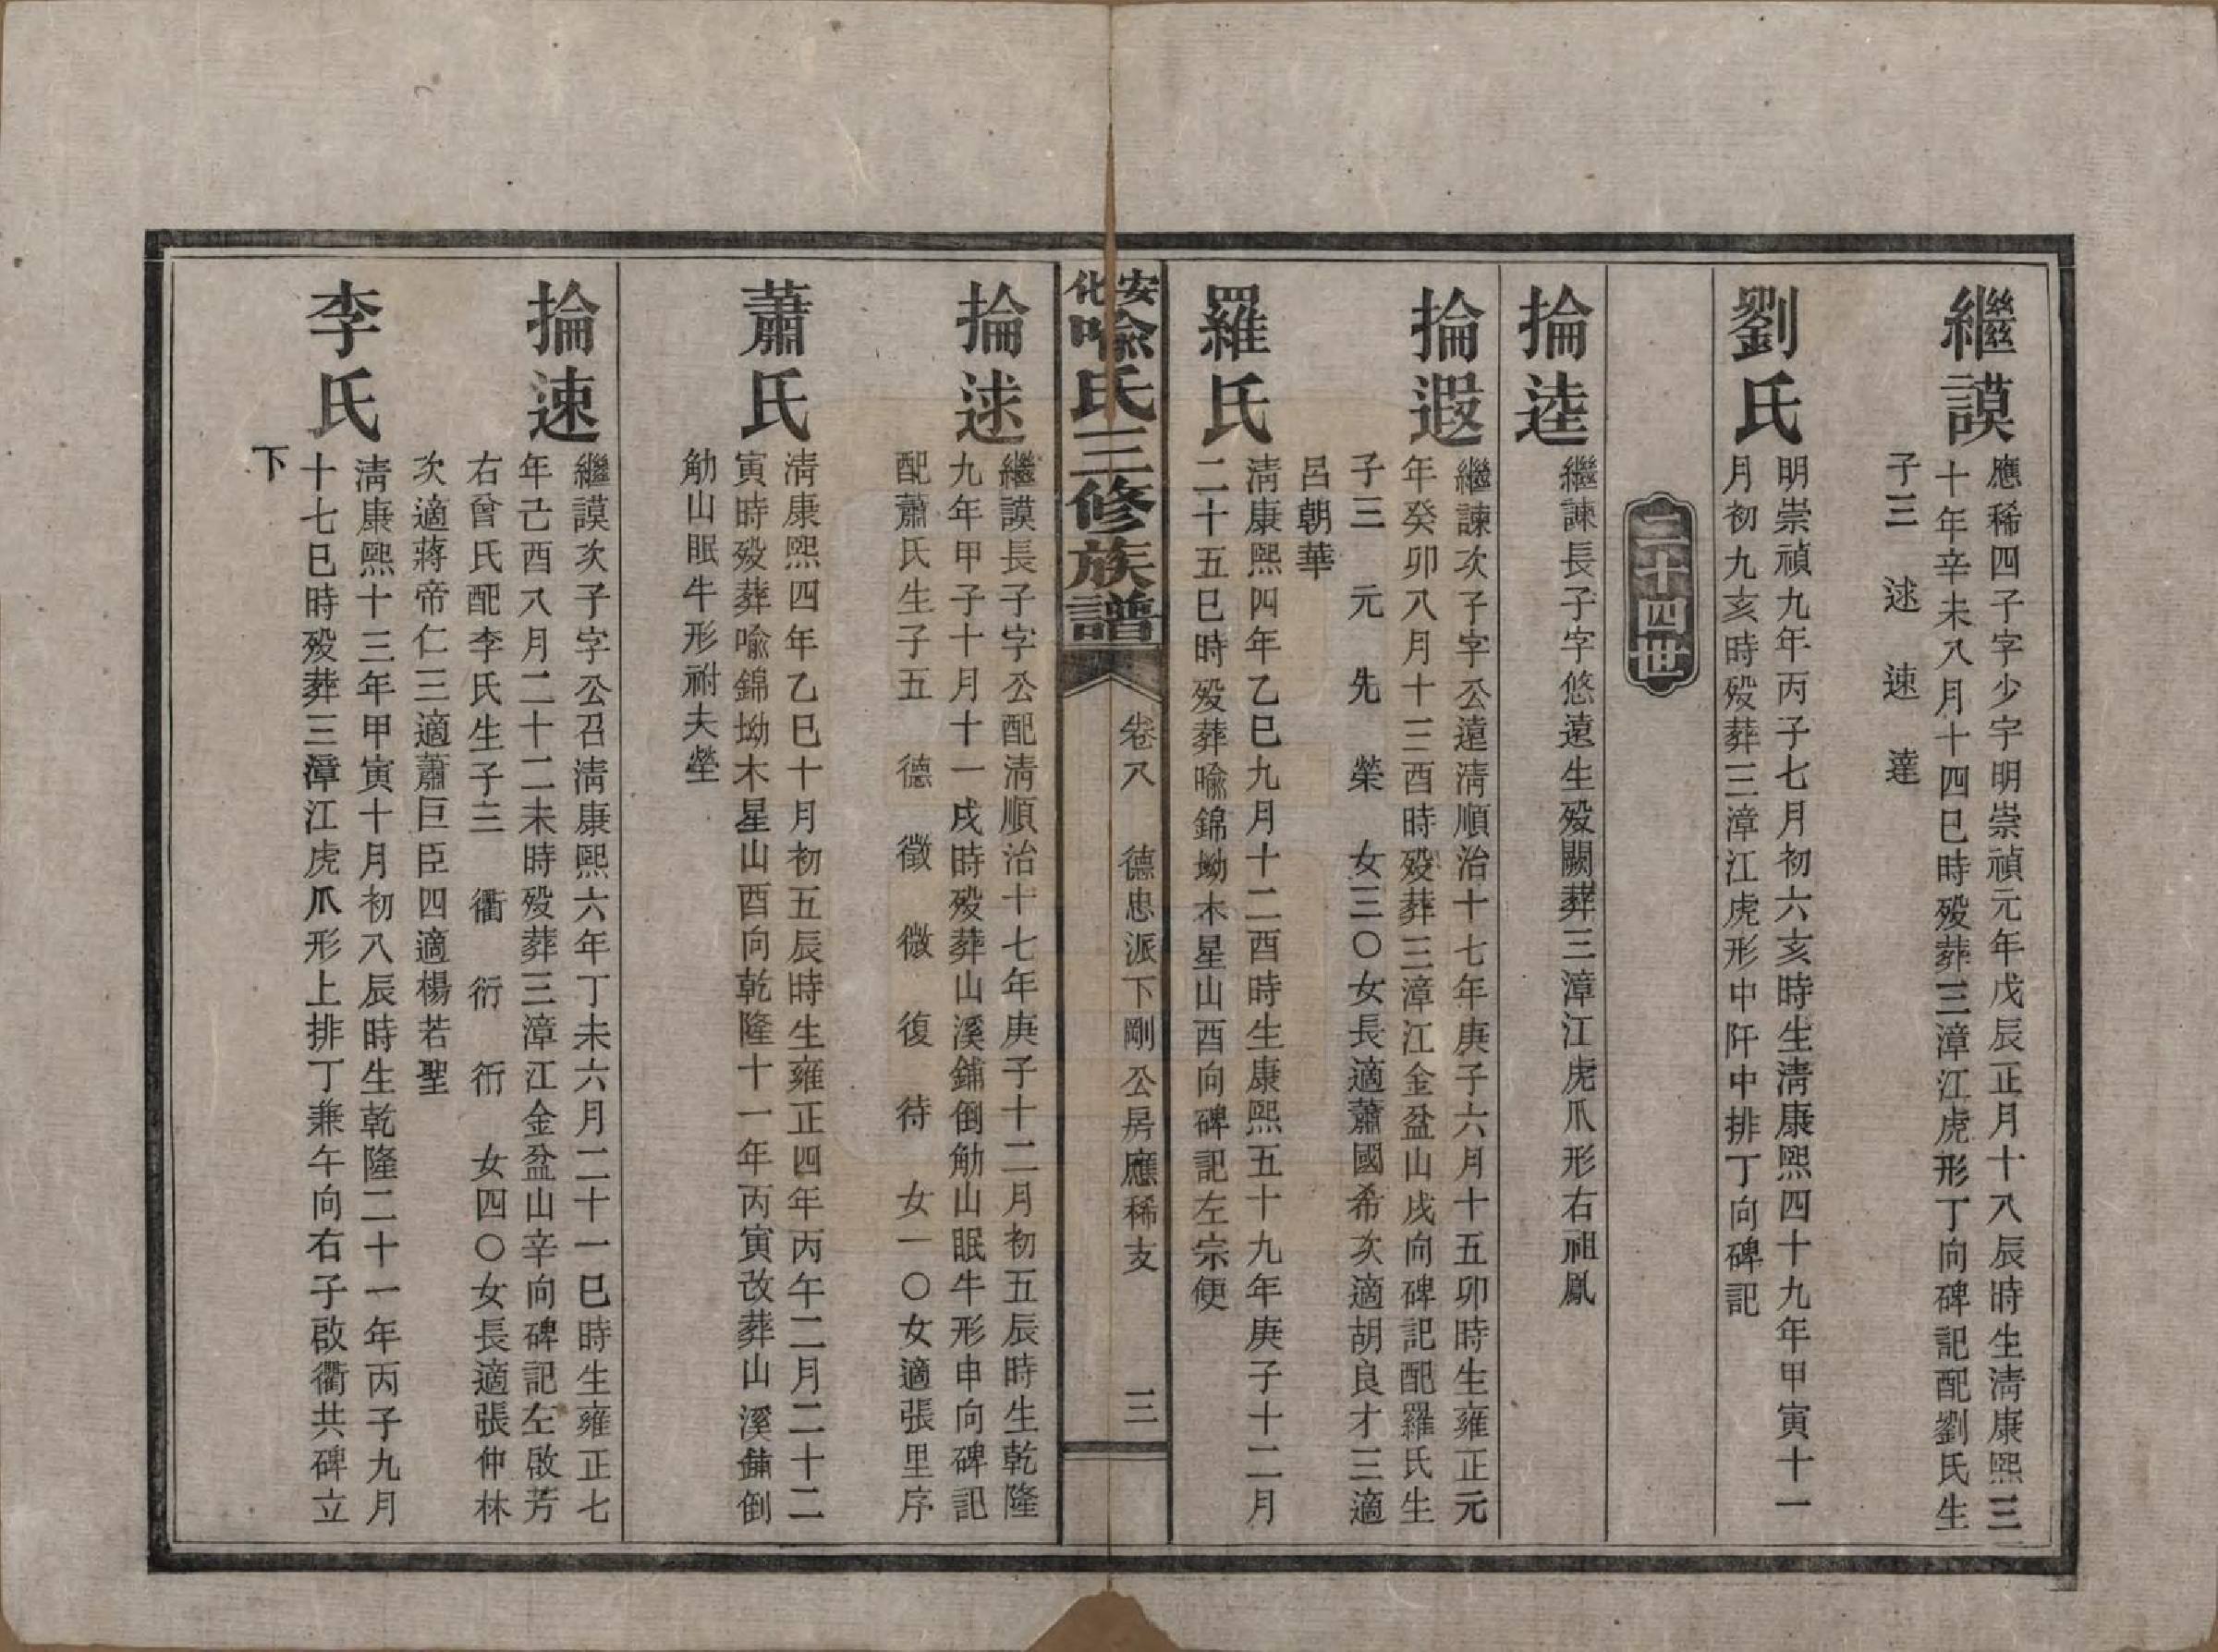 繼謨
應稀四子字少宇明崇禎元年戊辰正月十八辰時生淸康熙三
十年辛未八月十四巳時殁葬三漳江虎形丁向碑記配劉氏生
子三 逑 速 達
劉氏
明崇禎九年丙子七月初六亥時生淸康熙四十九年甲寅十一
月初九亥時殁葬三漳江虎形中阡中排丁向碑記
二十四世
掄逵
繼諫長子字悠遠生殁闕葬三漳江虎爪形右祖鳳
掄遐
繼諫次子字公遠淸順治十七年庚子六月十五卯時生雍正元
年癸卯八月十三酉時殁葬三漳江金盆山戌向碑記配羅氏生
子三 元 先 榮 女三〇女長適蕭國希次適胡良才三適
呂朝華
羅氏
淸康熙四年乙巳九月十二酉時生康熙五十九年庚子十二月
二十五巳時殁葬喩錦坳木星山酉向碑記左宗便
安化喩氏三修族譜 卷八 德忠派下剛公房應稀支 三
掄逑
繼謨長子字公配淸順治十七年庚子十二月初五辰時生乾隆
九年甲子十月十一戌時殁葬山溪鋪倒觔山眠牛形申向碑記
配蕭氏生子五 德 徵 微 復 待 女一〇女適張里序
蕭氏
淸康熙四年乙巳十月初五辰時生雍正四年丙午二月二十二
寅時殁葬喩錦坳木星山酉向乾隆十一年丙寅改葬山溪鋪倒
觔山眠牛形祔夫塋
掄速
繼謨次子字公召淸康熙六年丁未六月二十一巳時生雍正七
年己酉八月二十二未時殁葬三漳江金盆山辛向碑記左啟芳
右曾氏配李氏生子三 衢 衍 衎 女四〇女長適張仲林
次適蔣帝仁三適蕭巨臣四適楊若聖
李氏
淸康熙十三年甲寅十月初八辰時生乾隆二十一年丙子九月
十七巳時殁葬三漳江虎爪形上排丁兼午向右子啟衢共碑立
下